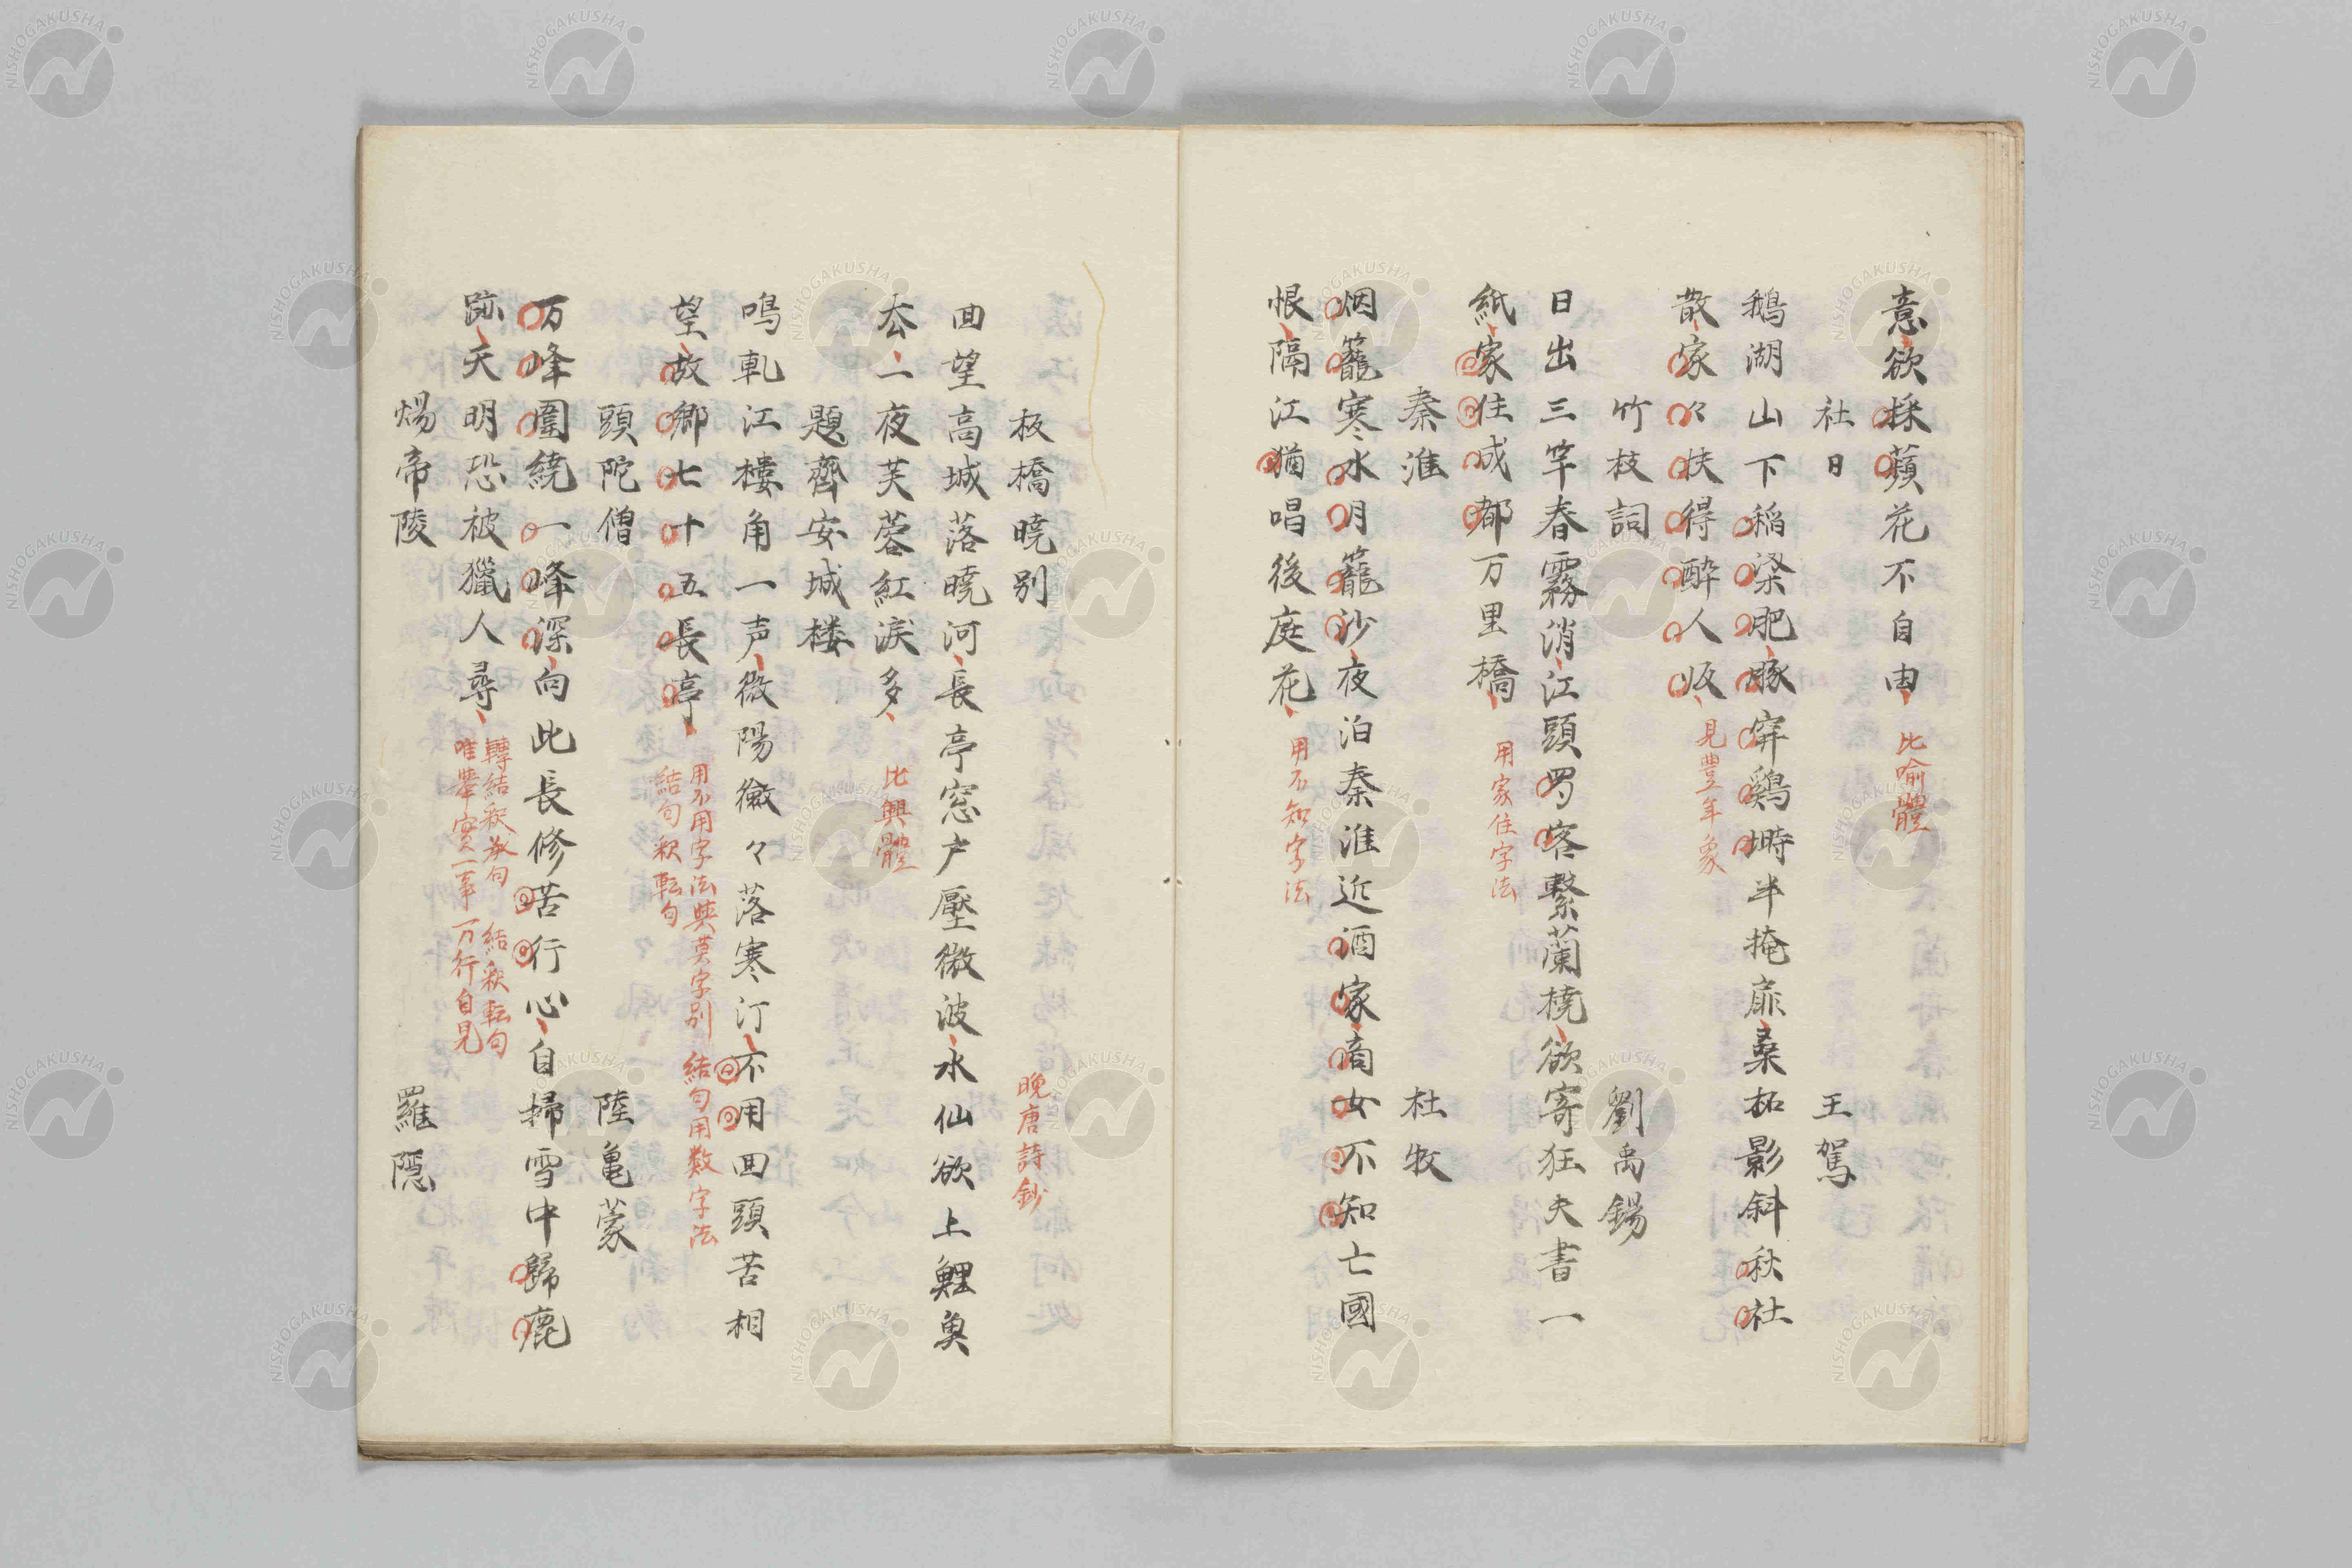 意欲採蘋花不自由、比喩體
社日 王駕
鵝湖山下稲梁肥、豚穽鷄塒半掩扉、桑柘影斜秋社
散、家々扶得醉人皈、見豊年象
竹枝詞 劉禹錫
日出三竿春霧消、江頭蜀客繫蘭橈、欲寄狂夫書一
紙、家住成都万里橋、用家住字法
秦淮 杜牧
烟籠寒水月籠沙、夜泊秦淮近酒家、商女不知亡國
恨、隔江猶唱後庭花、用不知字法
板橋暁別 晩唐詩鈔
回望高城落暁河、長亭窓户壓微波、水仙欲上鯉魚
去、一夜芙蓉紅淚多、比興體
題齊安城楼
鳴軋江楼角一声、微陽瀲々落寒汀、不用回頭苦相
望、故郷七十五長亭、用不用字法與莫字別 結句用数字法
結句釈転句
頭陀僧 陸亀蒙
万峰圍繞一峰深、向此長修苦行心、自掃雪中歸鹿
跡、天明恐被獵人尋、轉結釈承句 結釈転句
唯挙實一事万行自見
煬帝陵 羅隠
NISHOGAKUSHA